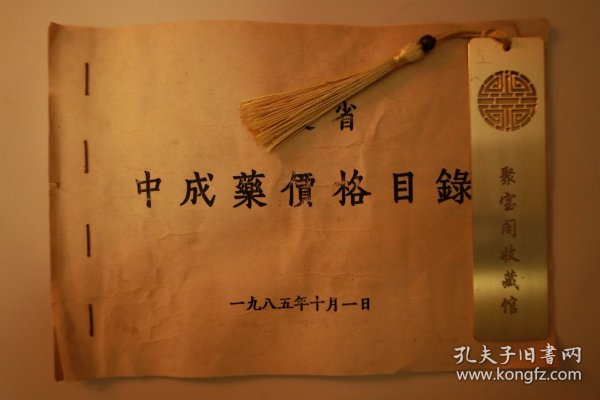 省
中成藥價格目錄
一九八五年十月一日
聚宝阁收藏馆
孔夫子旧书网
www.kongfz.com